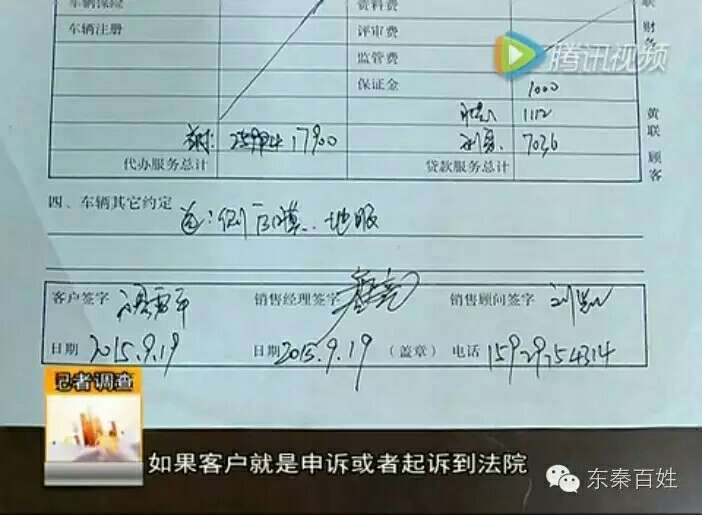 车辆保险 资料费 联
车辆注册 评审费 财务
监管费 腾讯视频
保证金 1000
1112 黄联
17900 7036
代办服务总计 贷款服务总计 顾客
四、车辆其它约定 送:侧后膜、地胶
客户签字 销售经理签字 销售顾问签字
日期 2015.9.19 日期 2015.9.19 (盖章) 电话 15929754314
记者调查
如果客户就是申诉或者起诉到法院
东秦百姓